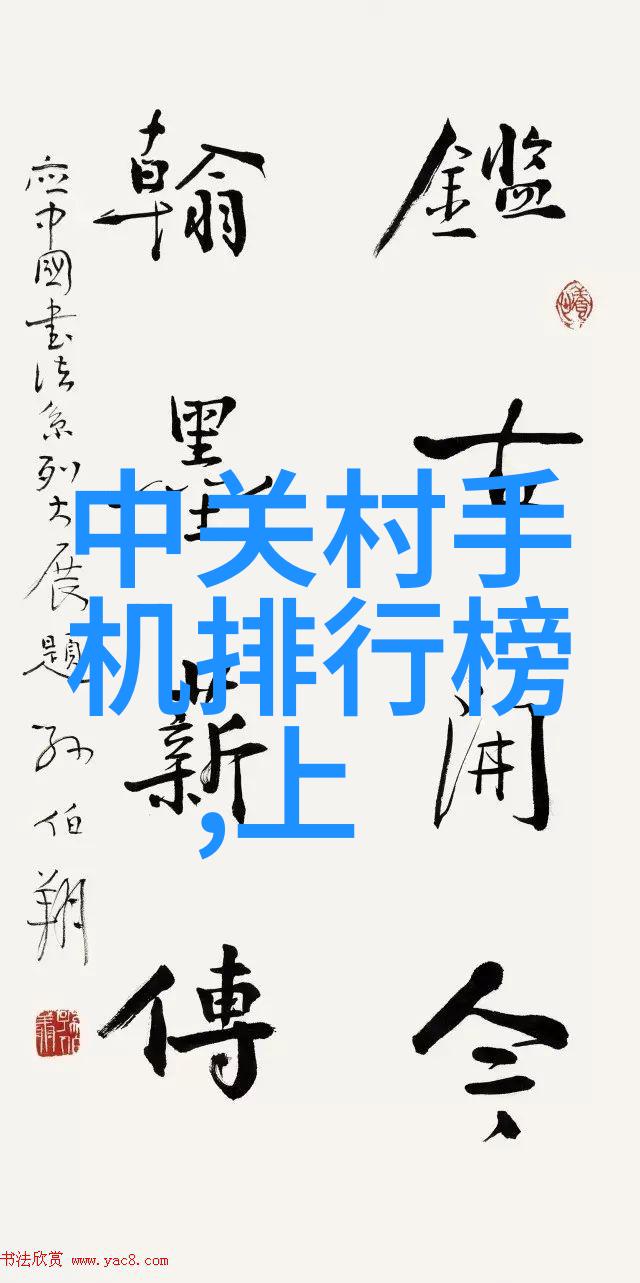 鑑古開今
翰墨薪傳
应中國書法系列大展題 孙伯翔
中关村手
机排行榜
,上
书法欣赏 www.yac8.com